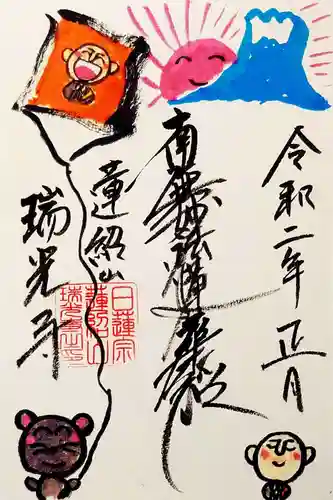 令和二年正月
南無妙法蓮華経
蓮紹山
瑞光寺
日蓮宗
蓮紹山
瑞光寺印